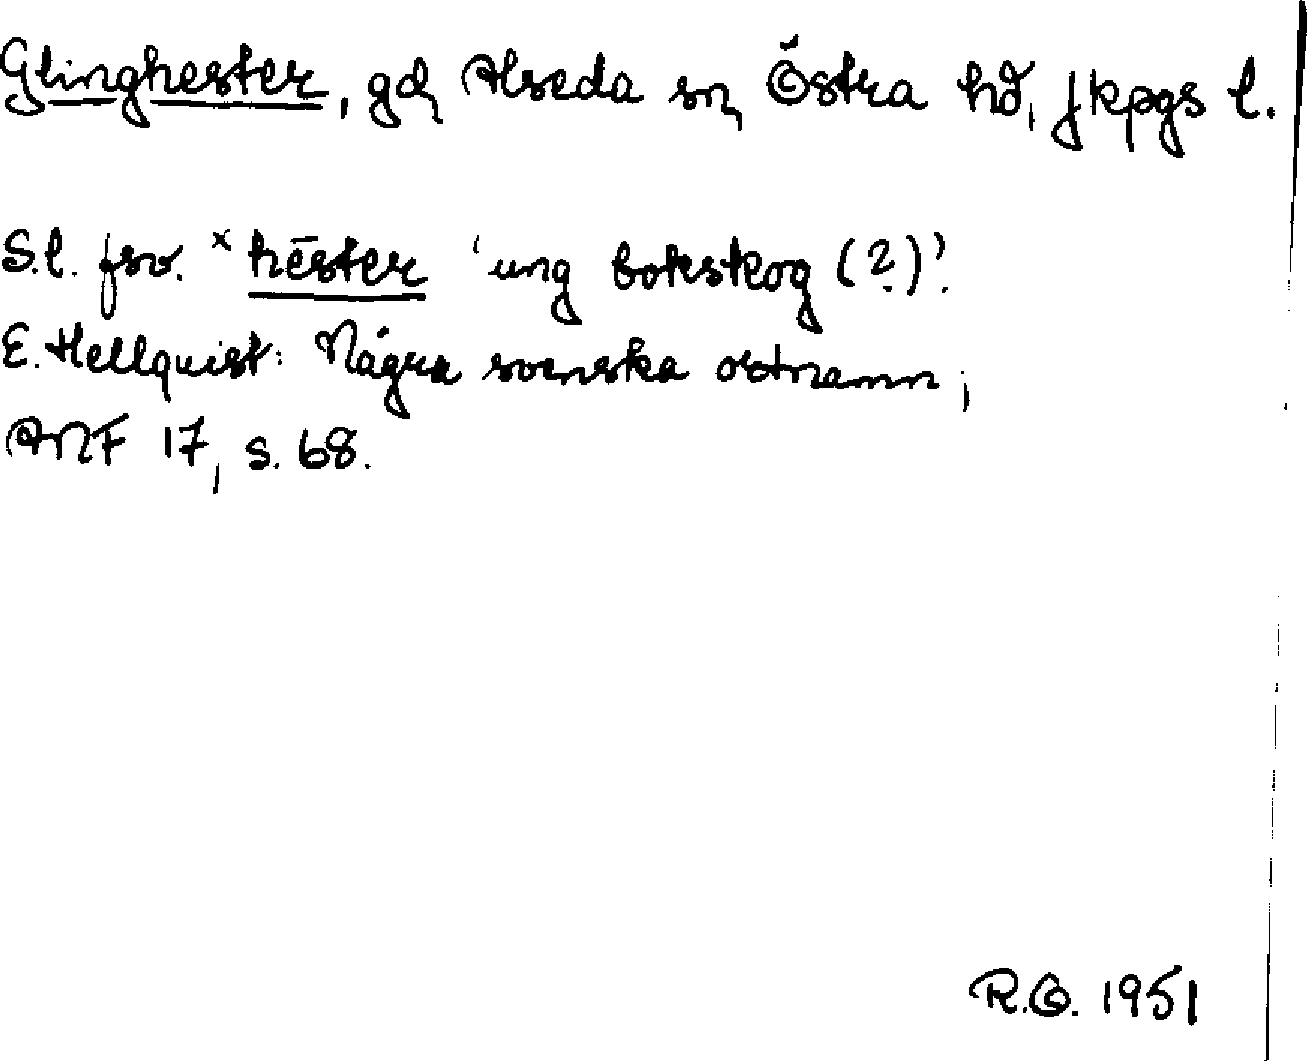 Glinghester, gd, Alseda sn, Östra hd, Jkpgs l.
S.l. fsv. ˣhēster 'ung bokskog (?)'.
E. Hellquist: Några svenska ortnamn;
ANF 17, s. 68.
R.G. 1951